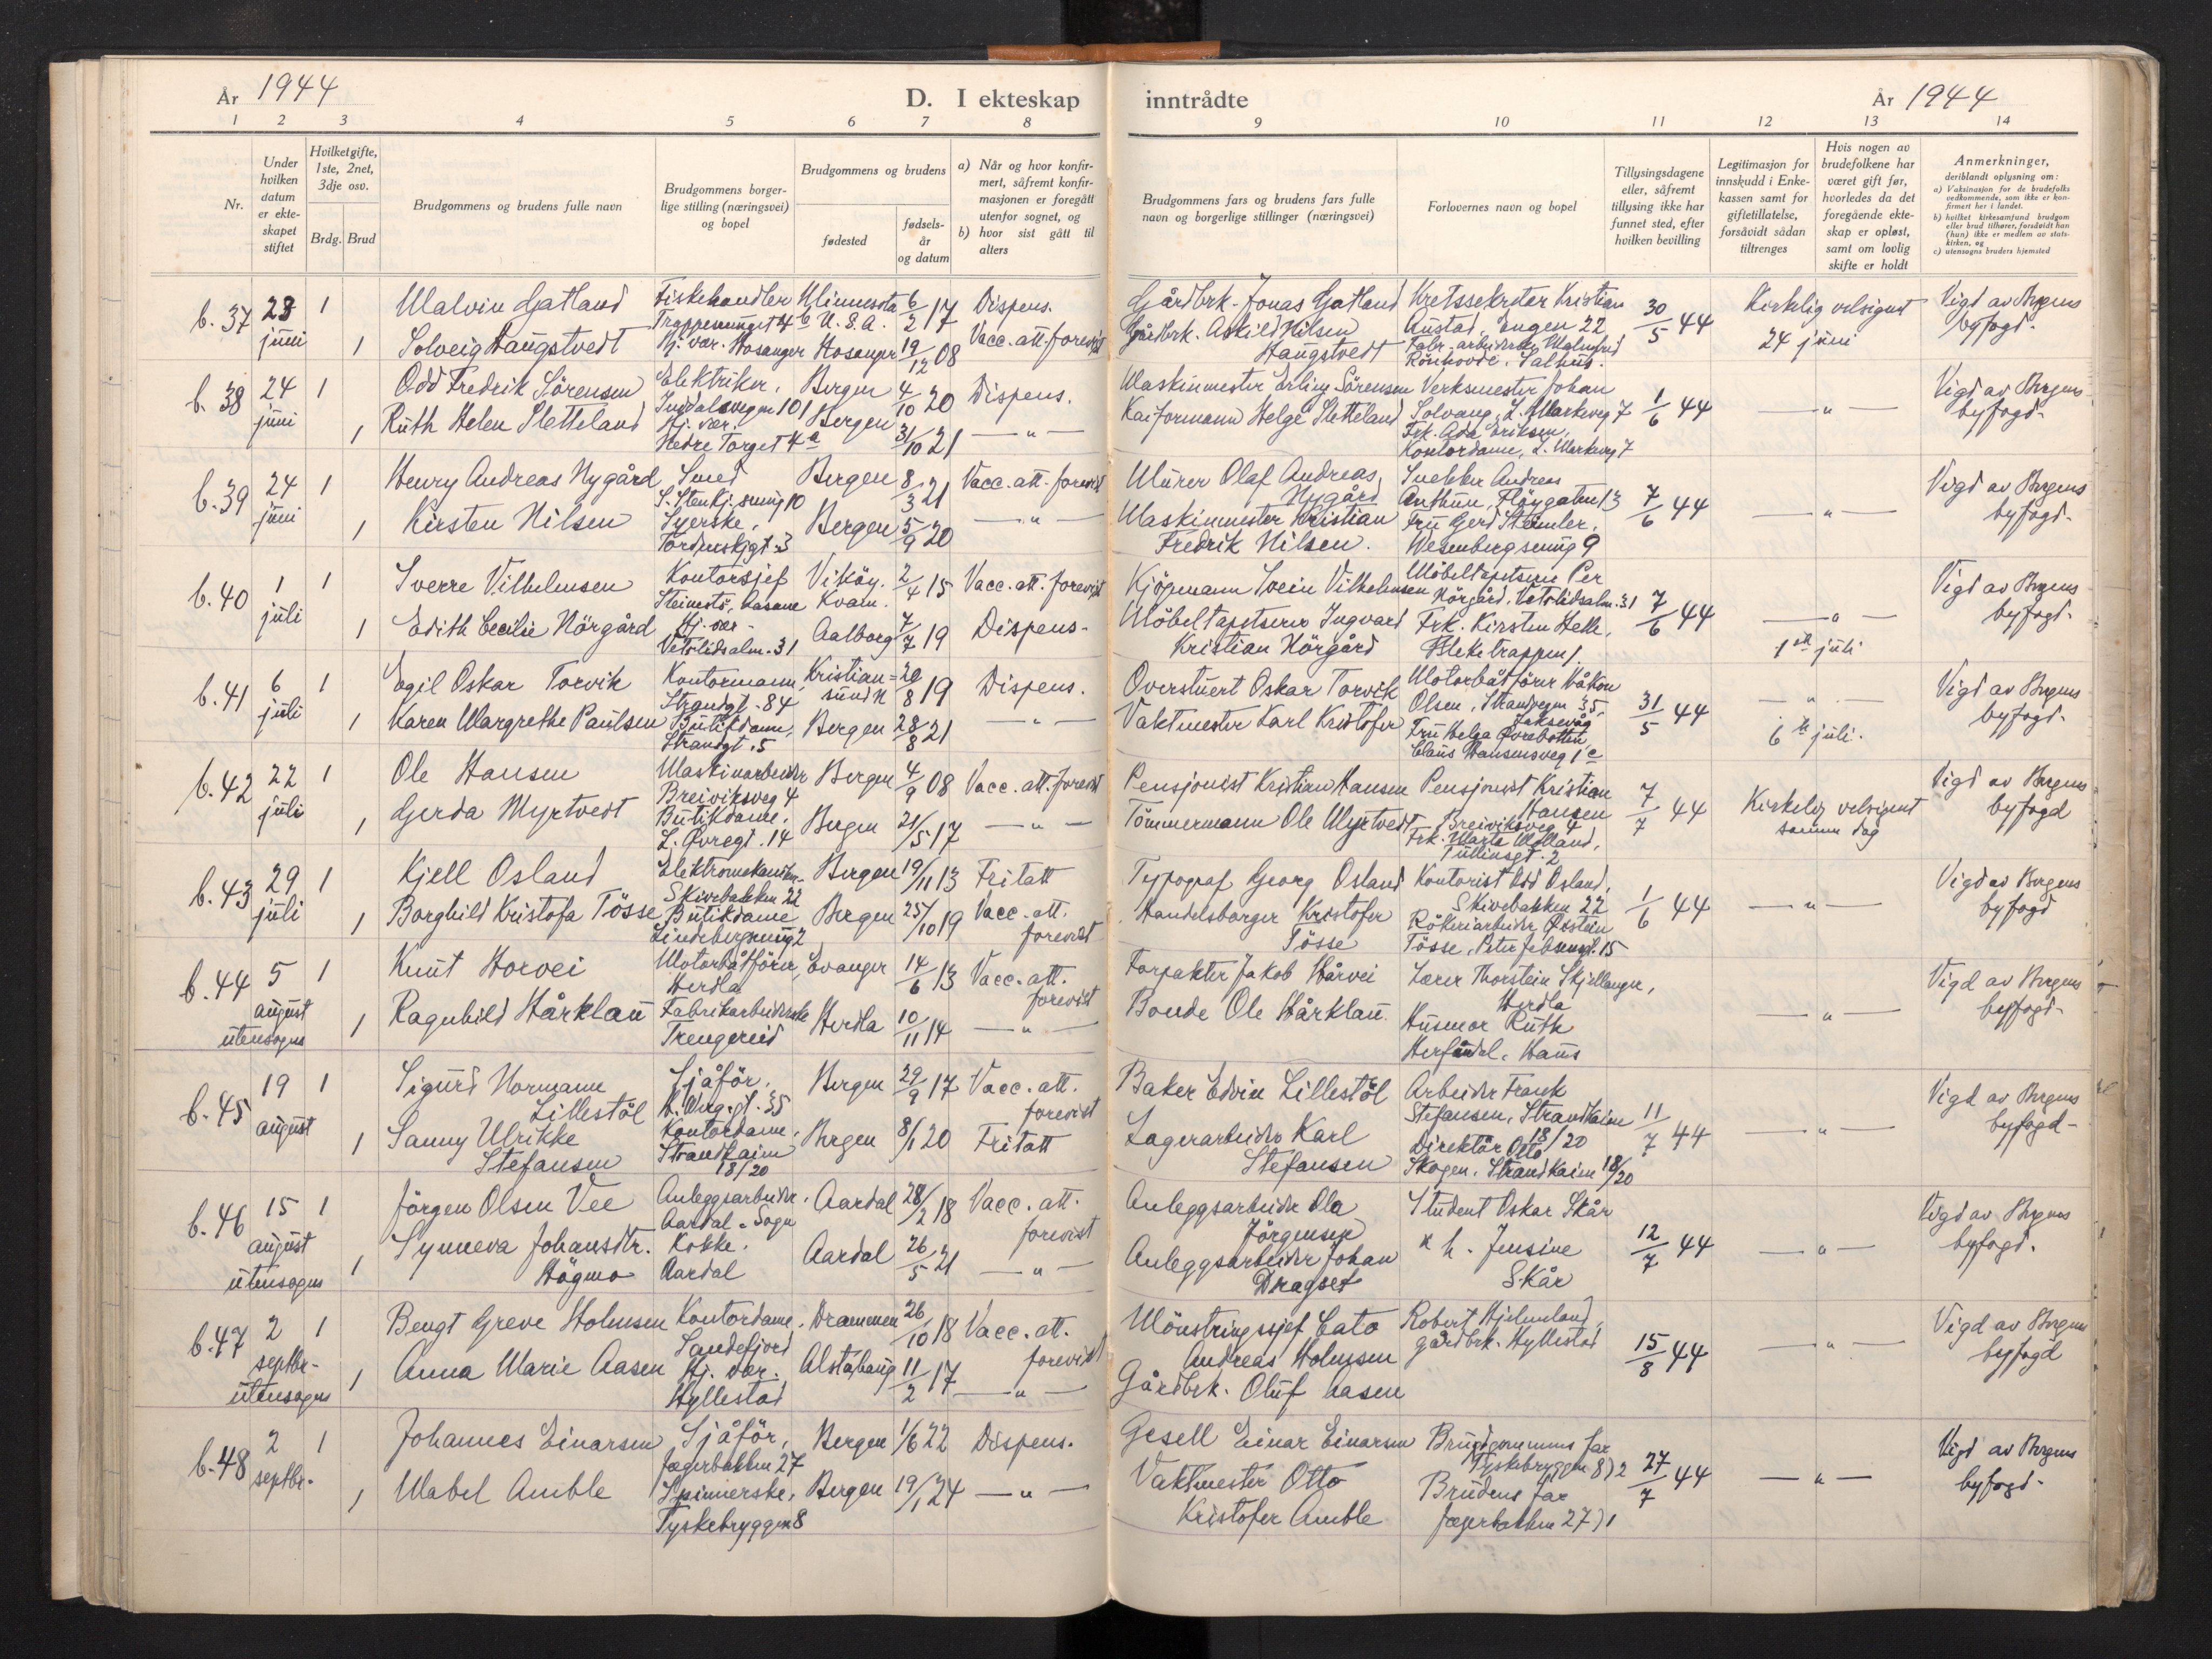 År 1944
D. I ekteskap inntrådte
År 1944
1 2 3 4 5 6 7 8 9 10 11 12 13 14
Nr.
Under hvilken datum er ekteskapet stiftet
Hvilketgifte, 1ste, 2net, 3dje osv.
Brdg. Brud
Brudgommens og brudens fulle navn
Brudgommens borger-
lige stilling (næringsvei)
og bopel
Brudgommens og brudens
fødested
fødsels-
år
og datum
a) Når og hvor konfir-
mert, såfremt konfir-
masjonen er foregått
utenfor sognet, og
b) hvor sist gått til
alters
Brudgommens fars og brudens fars fulle
navn og borgerlige stillinger (næringsvei)
Forlovernes navn og bopel
Tillysingsdagene
eller, såfremt
tillysing ikke har
funnet sted, efter
hvilken bevilling
Legitimasjon for
innskudd i Enke-
kassen samt for
giftetillatelse,
forsåvidt sådan
tiltrenges
Hvis nogen av
brudefolkene har
været gift før,
hvorledes da det
foregående ekte-
skap er opløst,
samt om lovlig
skifte er holdt
Anmerkninger,
deriblandt oplysning om:
a) Vaksinasjon for de brudefolks
vedkommende, som ikke er kon-
firmert her i landet.
b) hvilket kirkesamfund brudgom
eller brud tilhører, forsåvidt han
(hun) ikke er medlem av stats-
kirken, og
c) utensogns bruders hjemsted
b. 37 23 juni 1 Malvin Gatland Fiskehandler Minnesota 6/2 17 Dispens.
Trappesmuget 4 b U.S.A.
1 Solveig Haugstvedt Hj. vær. Hosanger Hosanger 19/12 08 Vacc. att. forevist
Gårdbrk. Jonas Gatland Kretssekretær Kristian
Gårdbrk. Askild Nilsen Austad, Engen 22 30/5 44 Kirkelig velsignet Vigd av Bergens
Haugstvedt Fabr. arbeiderske Malmfrid 24 juni byfogd.
Rönhovde, Salhus.
b. 38 24 juni 1 Odd Fredrik Sörensen Elektriker, Bergen 4/10 20 Dispens.
Inndalsvegen 101
1 Ruth Helen Sletteland Hj. vær. Bergen 31/10 21 — " —
Nedre Torget 4 a
Maskinmester Erling Sörensen Verksmester Johan
Kaiformann Helge Sletteland Solvang, L. Markeveg 7 1/6 44 — " — Vigd av Bergens
Frk. Ada Eriksen, byfogd.
Kontordame, L. Markeveg 7
b. 39 24 juni 1 Henry Andreas Nygård Smed Bergen 8/3 21 Vacc. att. forevist
S. Stenkj. smug 10
1 Kirsten Nilsen Syerske, Bergen 5/9 20 — " —
Tordenskjgt. 3
Murer Olaf Andreas Snekker Andreas
Nygård Anthun, Flöygaten 13 7/6 44 — " — Vigd av Bergens
Maskinmester Kristian Fru Gerd Steimler, byfogd.
Fredrik Nilsen. Wesenbergsmug 9
b. 40 1 juli 1 Sverre Vilhelmsen Kontorsjef Viköy. 2/4 15 Vacc. att. forevist
Steinestö, Aasane Kvam.
1 Edith Cecilie Nörgård Hj. vær. Aalborg 7/7 19 Dispens.
Vetrlidsalm. 31
Kjöpmann Svein Vilhelmsen Möbeltapetserer Per
Nörgård, Vetrlidsalm. 31 7/6 44 — " — Vigd av Bergens
Möbeltapetserer Ingvard Frk. Kirsten Helle, 1ste juli byfogd.
Kristian Nörgård Bleketrappen 1.
b. 41 6 juli 1 Egil Oskar Torvik Kontormann, Kristian= 20/8 19 Dispens.
Strandgt. 84 sund N
1 Karen Margrethe Paulsen Butikdame, Bergen 28/8 21 — " —
Strandgt. 5
Overstuert Oskar Torvik Motorbåtförer Håkon
Olsen, Strandvegen 35, 31/5 44 — " — Vigd av Bergens
Vaktmester Karl Kristofer Laksevåg 6te juli. byfogd.
Fru Helga Övrebotten,
Claus Hansensveg 1 c
b. 42 22 juli 1 Ole Hansen Maskinarbeider Bergen 4/9 08 Vacc. att. forevist
Breiviksveg 4
1 Gerda Myrtvedt Butikdame, Bergen 21/5 17 — " —
L. Øvregt. 14
Pensjonist Kristian Hansen Pensjonist Kristian
Hansen 7/7 44 Kirkelig velsignet Vigd av Bergens
Tömmermann Ole Myrtvedt Breiviksveg 4 samme dag byfogd
Frk. Marta Molland,
Tullinsgt. 2
b. 43 29 juli 1 Kjell Osland Elektromekaniker Bergen 19/11 13 Fritatt
Skivebakken 22
1 Borghild Kristofa Tösse Butikdame Bergen 25/10 19 Vacc. att.
Lindebergsmug 2 forevist
Typograf Georg Osland Kontorist Odd Osland,
Handelsborger Kristofer Skivebakken 22 1/6 44 — " — Vigd av Bergens
Tösse Rökeriarbeider Øistein byfogd
Tösse, Peter Jebsensgt. 15
b. 44 5 august 1 Knut Horvei Motorbåtförer, Evanger 14/6 13 Vacc. att.
utensogns Herdla forevist
1 Ragnhild Hårklau Fabrikarbeiderske Herdla 10/11 14 — " —
Trengereid
Forpakter Jakob Hårvei Lærer Thorstein Skjellanger,
Bonde Ole Hårklau. Herdla — " — Vigd av Bergens
Husmor Ruth byfogd.
Herfindal, Haus
b. 45 19 august 1 Sigurd Normann Sjåför, Bergen 29/9 17 Vacc. att.
Lillestöl forevist
1 Sanny Ulrikke Kontordame, Bergen 8/1 20 Fritatt
Stefansen Strandkaien
18/20
Baker Edvin Lillestöl Arbeider Frank
Stefansen, Strandkaien 11/7 44 — " — Vigd av Bergens
Lagerarbeider Karl 18/20 byfogd.
Direktör Otto
Stefansen Skogen, Strandkaien 18/20
b. 46 15 august 1 Jörgen Olsen Vee Anleggsarbeider, Aardal 28/2 18 Vacc. att.
utensogns Aardal, Sogn forevist
1 Synneva Johansdtr. Kokke, Aardal 26/5 21 — " —
Högmo Aardal
Anleggsarbeider Ola Student Oskar Skår
Jörgensen 12/7 44 — " — Vigd av Bergens
Anleggsarbeider Johan Jensine byfogd.
Dragset Skår
b. 47 2 septbr. 1 Bengt Greve Holmsen Kontordame, Drammen 26/10 18 Vacc. att.
utensogns Sandefjord forevist
1 Anna Marie Aasen Hj. vær. Alstahaug 11/2 17 — " —
Hyllestad
Mönstringssjef Cato Robert Hjelmeland,
Andreas Holmsen gårdbrk. Hyllestad 15/8 44 — " — Vigd av Bergens
Gårdbrk. Oluf Aasen byfogd
b. 48 2 septbr. 1 Johannes Einarsen Sjåför, Bergen 1/6 22 Dispens.
Jægerbakken 27
1 Mabel Amble Spinnerske, Bergen 19/1 24 — " —
Tyskebryggen 8
Gesell Einar Einarsen Brudgommens far
Tyskebryggen 8) 2 27/7 44 — " — Vigd av Bergens
Vaktmester Otto Brudens far byfogd.
Kristofer Amble Jægerbakken 27) 1